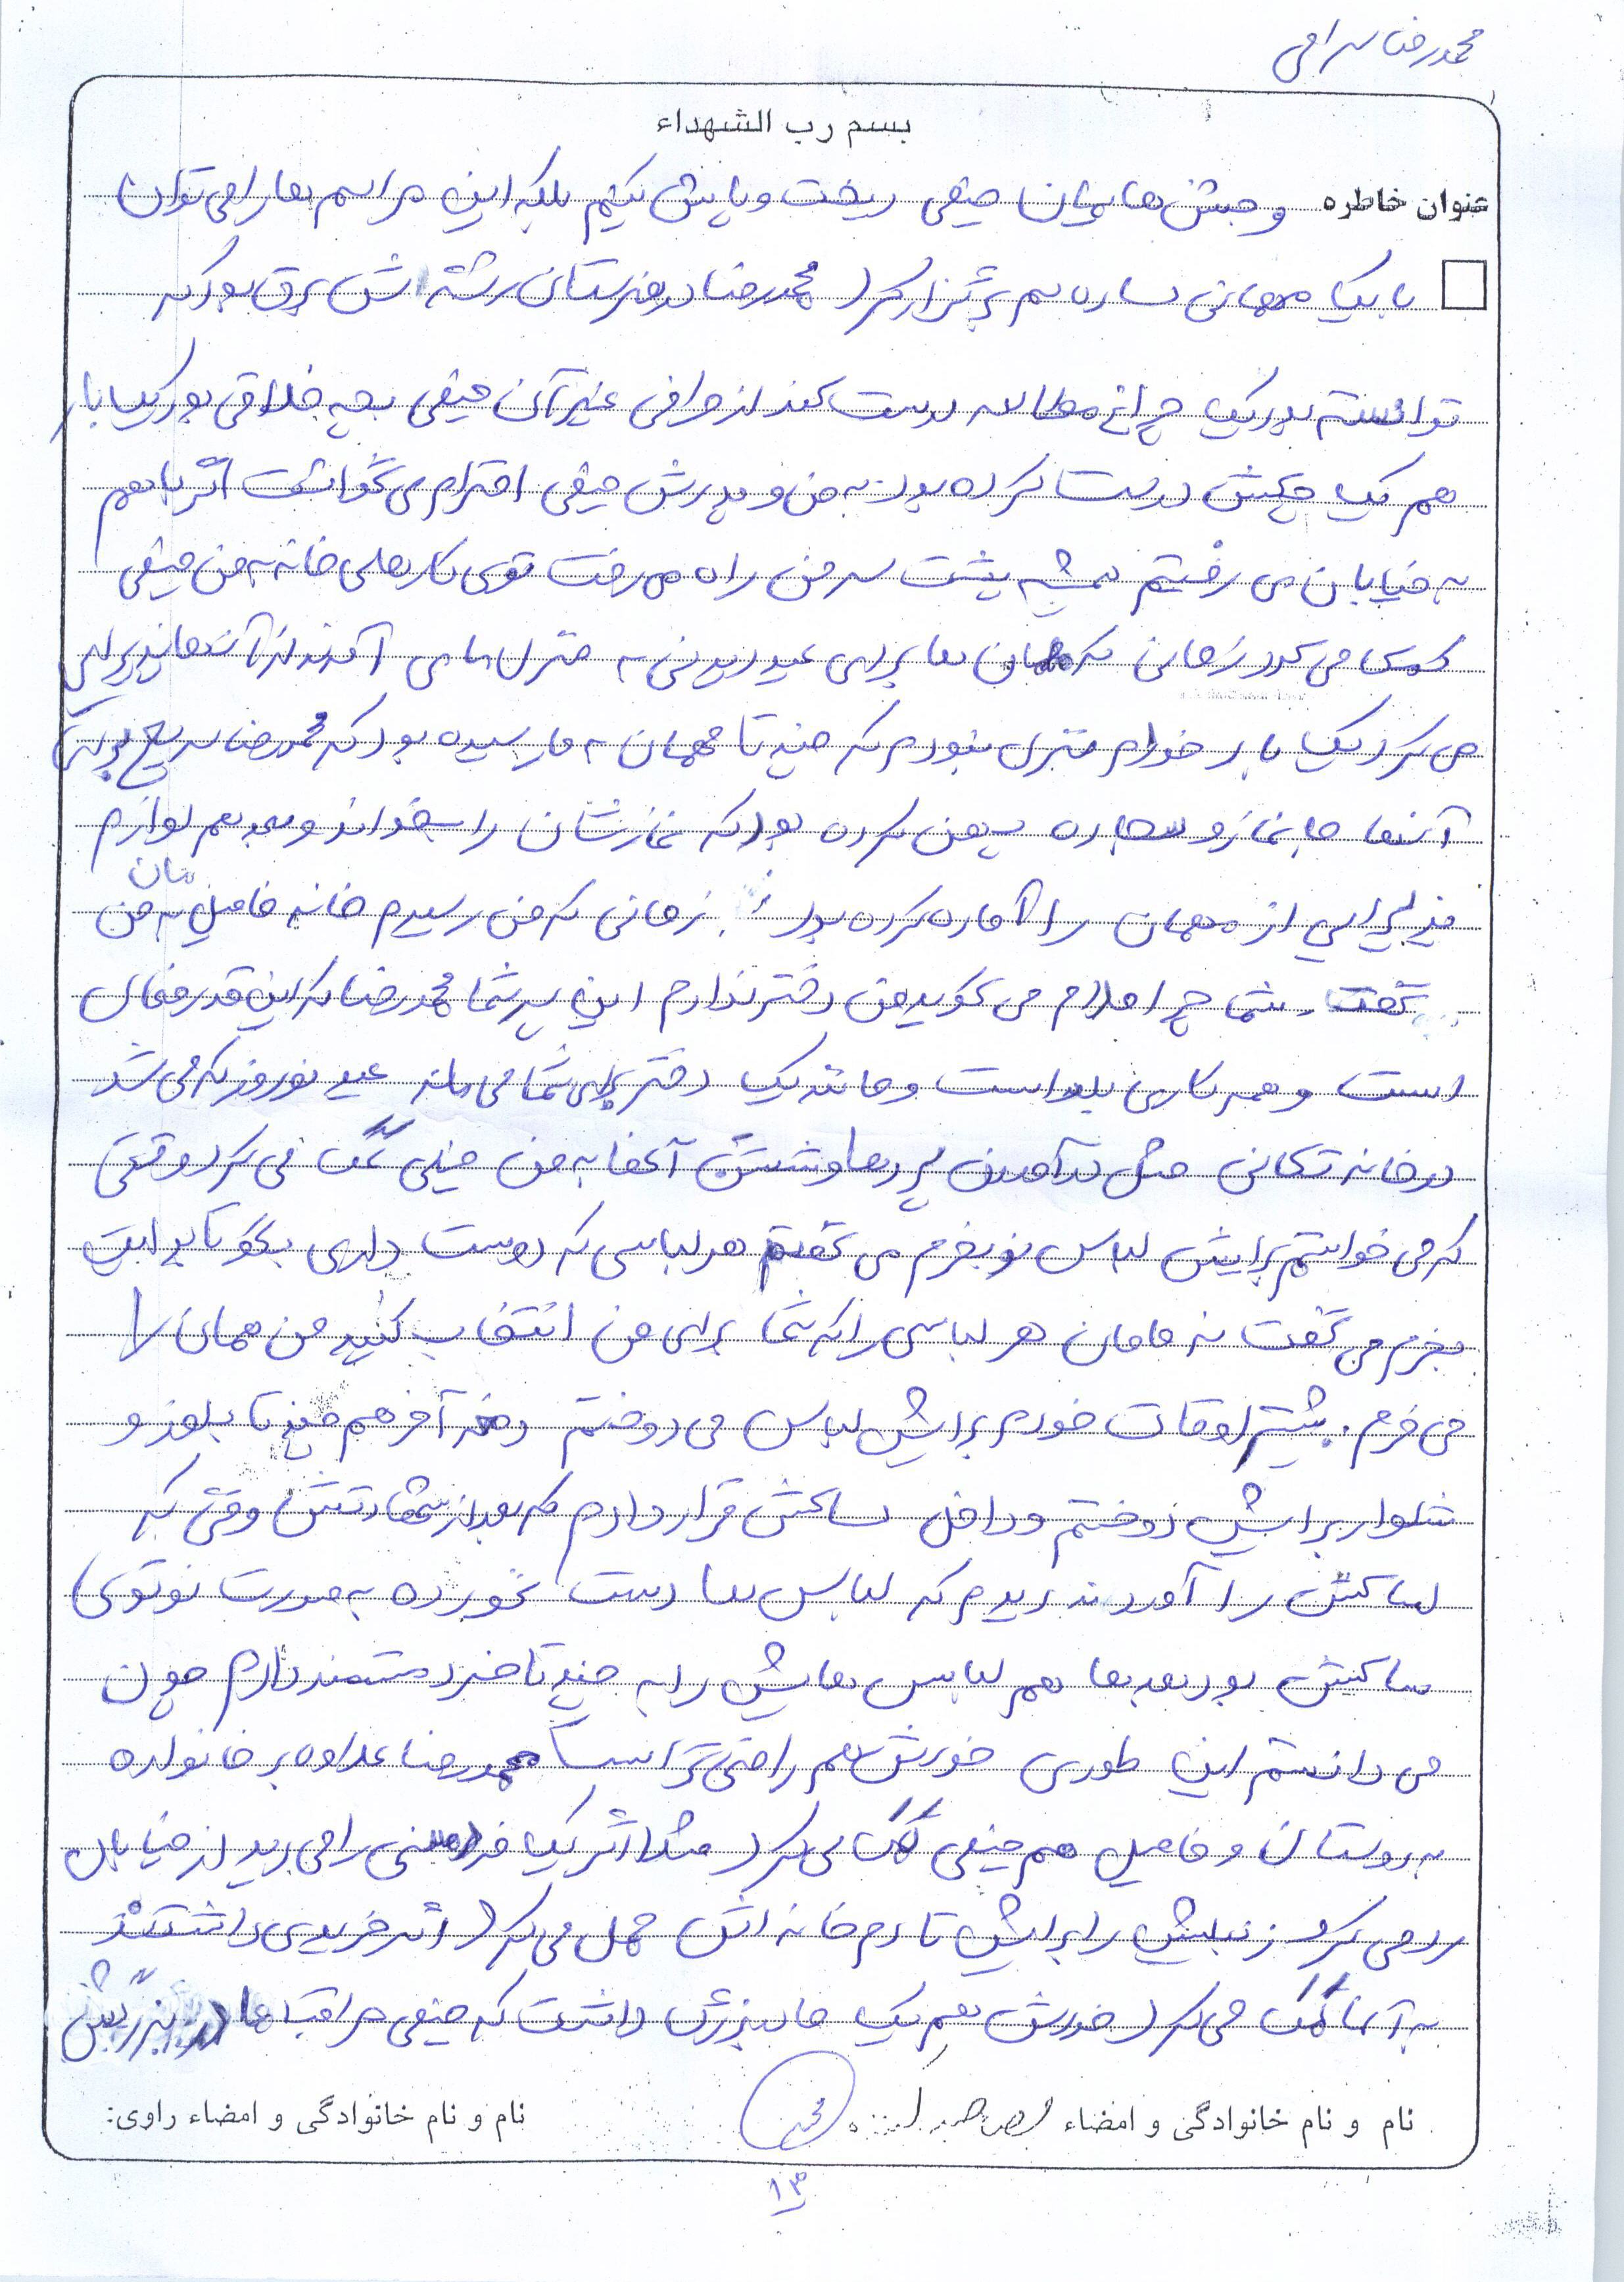 محمدرضا سرامی
بسم رب الشهداء
عنوان خاطره و جشن هایمان خیلی ریخت و پاش نکنیم بلکه این مراسم ها را می توان
با یک مهمانی ساده هم برگزار کرد محمدرضا در هنرستان رشته اش برق بود که
توانسته بود یک چراغ مطالعه درست کند از طرفی غیر از آن خیلی بچه خلاقی بود یک بار
هم یک چکش درست کرده بود به من و پدرش خیلی احترام می گذاشت اگر با هم
به خیابان می رفتیم همیشه پشت سر من راه می رفت توی کارهای خانه به من خیلی
کمک می کرد زمانی که مهمان ها برای عید دیدنی به منزل ما می آمدند از آن ها پذیرایی
می کرد یک بار خودم منزل نبودم که چند تا مهمان به ما رسیده بود که محمدرضا سریع برای
آنها جانماز و سجاده پهن کرده بود که نمازشان را بخوانند و بعد هم لوازم
پذیرایی از مهمان را آماده کرده بود. زمانی که من رسیدم خانه فامیل مان به من
گفت شما چرا مدام می گویید من دختر ندارم این پسر شما محمدرضا که این قدر فعال
است و همه کاری بلد است و مانند یک دختر برای شما می ماند عید نوروز که می شد
در خانه تکانی مثل درآمدن پرده ها و شستن آنها به من خیلی کمک می کرد وقتی
که می خواستم برایش لباس نو بخرم می گفتم هر لباسی که دوست داری بگو تا برایت
بخرم می گفت نه مامان هر لباسی را که شما برای من انتخاب کنید من همان را
می خرم. بیشتر اوقات خودم برایش لباس می دوختم دفعه آخر هم چند تا بلوز و
شلوار برایش دوختم و داخل ساکش قرار دادم که بعد از شهادتش وقتی که
ساکش را آوردند دیدم که لباس ها دست نخورده به صورت نو توی
ساکش بود بعد ها هم لباس هایش را به چند تا فرد مستمند دادم چون
می دانستم این طوری خودش هم راضی تر است محمدرضا علاوه بر خانواده
به دوستان و فامیل هم خیلی کمک می کرد مثلا اگر یک فرد مسنی را می دید از خیابان
رد می کرد و زنبیلش را برایش تا دم خانه اش حمل می کرد اگر خریدی داشتند
به آنها کمک می کرد خودش هم یک مادربزرگ داشت که خیلی مراقب مادربزرگش
نام و نام خانوادگی و امضاء
نام و نام خانوادگی و امضاء راوی:
۱۳